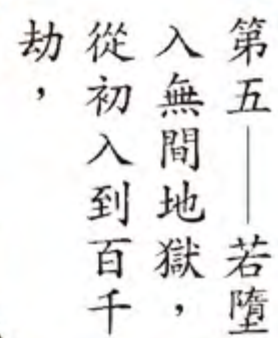 第五——若墮
入無間地獄，
從初入到百千
劫，